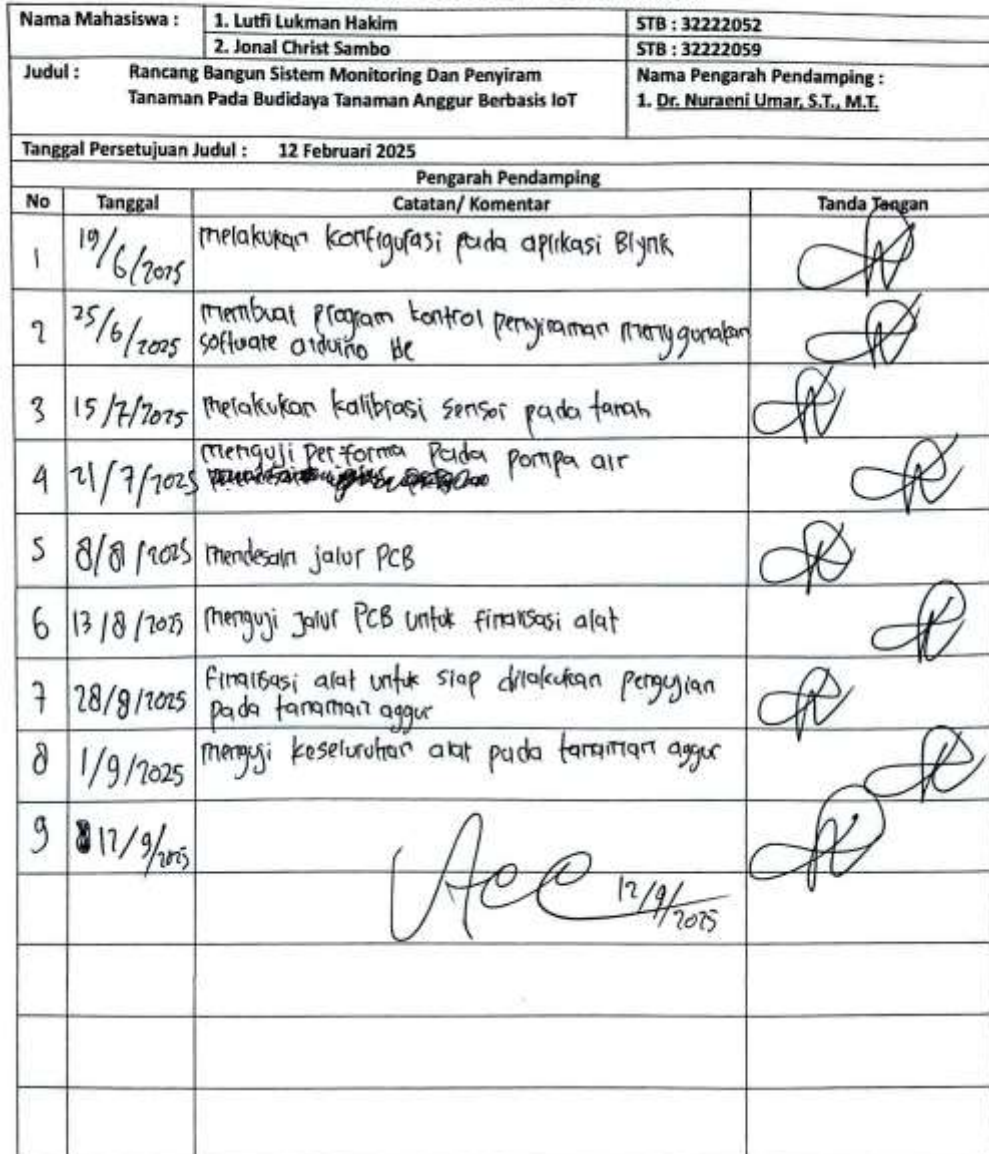 Nama Mahasiswa : 1. Lutfi Lukman Hakim STB : 32222052
2. Jonal Christ Sambo STB : 32222059
Judul : Rancang Bangun Sistem Monitoring Dan Penyiram Nama Pengarah Pendamping :
Tanaman Pada Budidaya Tanaman Anggur Berbasis IoT 1. Dr. Nuraeni Umar, S.T., M.T.
Tanggal Persetujuan Judul : 12 Februari 2025
Pengarah Pendamping
No Tanggal Catatan/ Komentar Tanda Tangan
1 19/6/2025 melakukan konfigurasi pada aplikasi Blynk
2 25/6/2025 membuat program kontrol penyiraman menggunakan
software arduino ide
3 15/7/2025 melakukan kalibrasi sensor pada tanah
4 21/7/2025 menguji performa pada pompa air
5 8/8/2025 mendesain jalur PCB
6 13/8/2025 menguji jalur PCB untuk finalisasi alat
7 28/8/2025 finalisasi alat untuk siap dilakukan pengujian
pada tanaman aggur
8 1/9/2025 menguji keseluruhan alat pada tanaman aggur
9 12/9/2025
Acc 12/9/2025